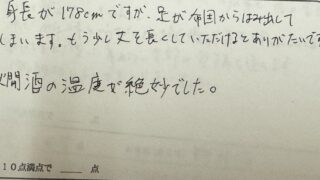 身長が178cmですが、足が布団からはみ出して
しまいます。もう少し丈を長くしていただけるとありがたいです
燗酒の温度が絶妙でした。
10点満点で ____ 点